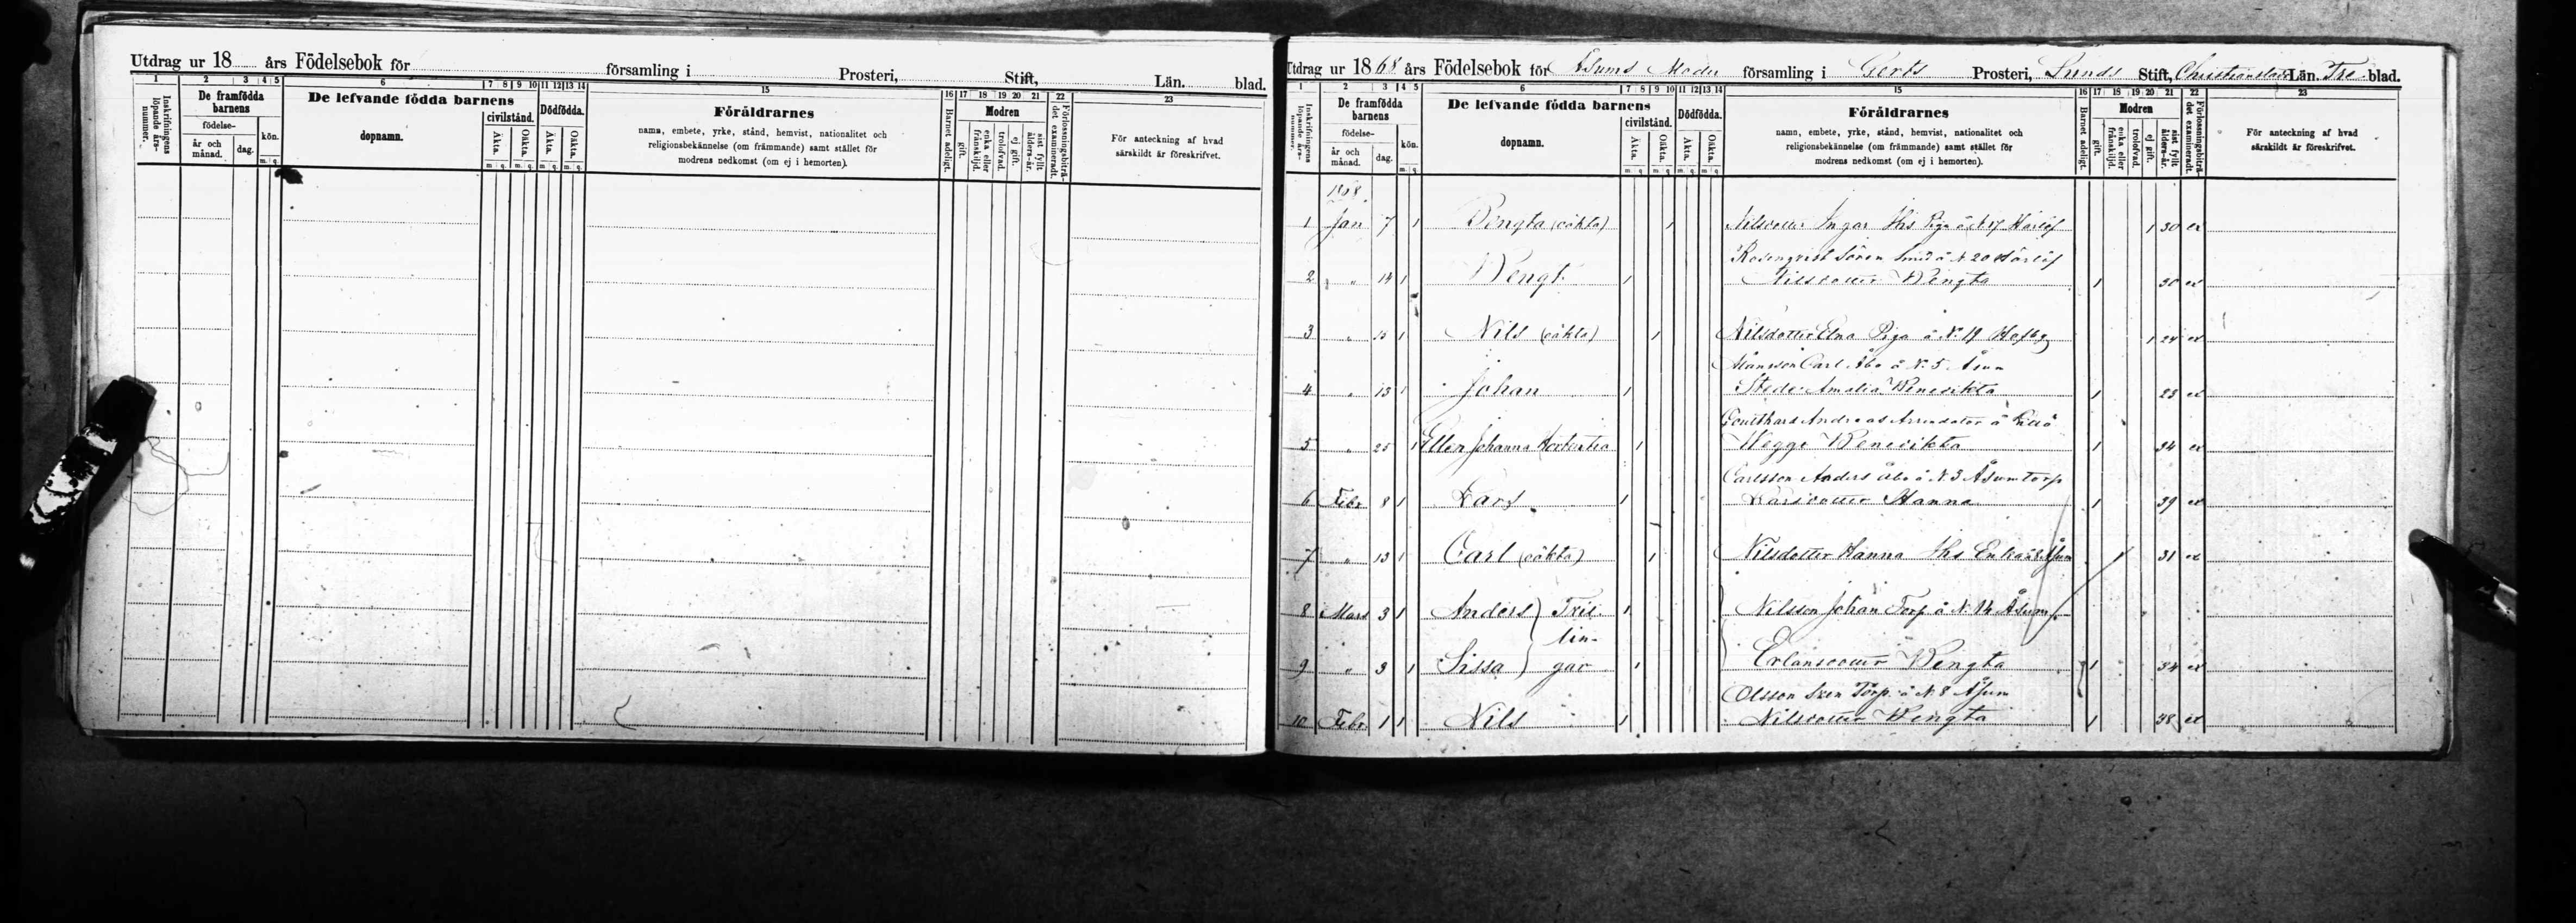 Utdrag ur 18 års Födelsebok för församling i Prosteri, Stift, Län. blad.
1 2 3 4 5 6 7 8 9 10 11 12 13 14 15 16 17 18 19 20 21 22 23
Inskrifningens löpande års-nummer.
De framfödda barnens
födelse-
år och månad.
dag.
kön.
m. q.
De lefvande födda barnens
dopnamn.
civilstånd.
Äkta.
Oäkta.
m. q. m. q.
Dödfödda.
Äkta.
Oäkta.
m. q. m. q.
Föräldrarnes
namn, embete, yrke, stånd, hemvist, nationalitet och
religionsbekännelse (om främmande) samt stället för
modrens nedkomst (om ej i hemorten).
Barnet adeligt.
Modren
gift.
enka eller frånskiljd.
trolofvad.
ej gift.
sist fyllt ålders-år.
Förlossningsbiträdet examineradt.
För anteckning af hvad
särskildt är föreskrifvet.
Utdrag ur 1868 års Födelsebok för Åsums Moder församling i Gerds Prosteri, Lunds Stift, Christianstads Län. Tre blad.
1 2 3 4 5 6 7 8 9 10 11 12 13 14 15 16 17 18 19 20 21 22 23
Inskrifningens löpande års-nummer.
De framfödda barnens
födelse-
år och månad.
dag.
kön.
m. q.
De lefvande födda barnens
dopnamn.
civilstånd.
Äkta.
Oäkta.
m. q. m. q.
Dödfödda.
Äkta.
Oäkta.
m. q. m. q.
Föräldrarnes
namn, embete, yrke, stånd, hemvist, nationalitet och
religionsbekännelse (om främmande) samt stället för
modrens nedkomst (om ej i hemorten).
Barnet adeligt.
Modren
gift.
enka eller frånskiljd.
trolofvad.
ej gift.
sist fyllt ålders-år.
Förlossningsbiträdet examineradt.
För anteckning af hvad
särskildt är föreskrifvet.
1868
1 Jan 7 1 Bengta (oäkta) 1 Nilsdotter Ingar Hs Piga å Härlöf 1 30 ex
Rosenqvist Sören Smed å N 20 Härlöf
2 " 14 1 Bengt 1 Nilsdotter Bengta 1 30 ex
3 " 15 1 Nils (oäkta) 1 Nilsdotter Elna Piga å N 19 1 24 ex
Månsson Carl Åbo å N. 5 Åsum
4 " 13 1 Johan 1 Stede Amalia Benedikta 1 23 ex
Andreas Arrendator å Lillö
5 " 25 1 Ellen Johanna 1 Hegge Benedikta 1 34 ex
Carlsson Anders Åbo å N 3 Åsumtorp
6 Febr 8 1 Lars 1 Larsdotter Hanna 1 39 ex
7 " 13 1 Carl (oäkta) 1 Nilsdotter Hanna Hs Enka å Åsum 1 31 ex
8 Mars 3 1 Anders Tril- 1 Nilsson Johan Torp å N 14 Åsum
lin-
9 " 3 1 Sissa gar 1 Erlandsdotter Bengta 1 34 ex
Olsson Sven Torp. å N 8 Åsum
10 Febr 1 1 Nils 1 Nilsdotter Bengta 1 38 ex